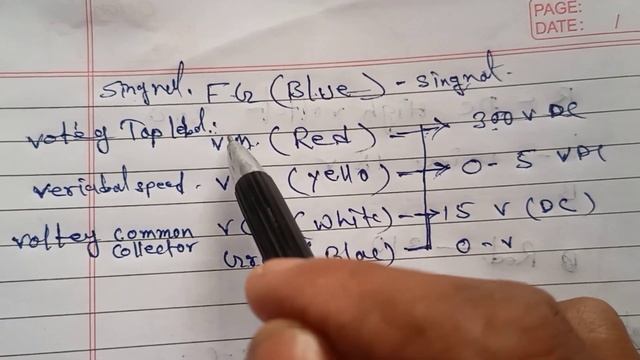 PAGE:
DATE: /
Singnel. FG (Blue) - Singnal.
vote of Tap lebal: vm. (Red) → 300 v DC
veriabal speed. v (yello) → 0 - 5 VDC
voltey common collector v (white) → 15 v (DC)
(Blac) 0 - v